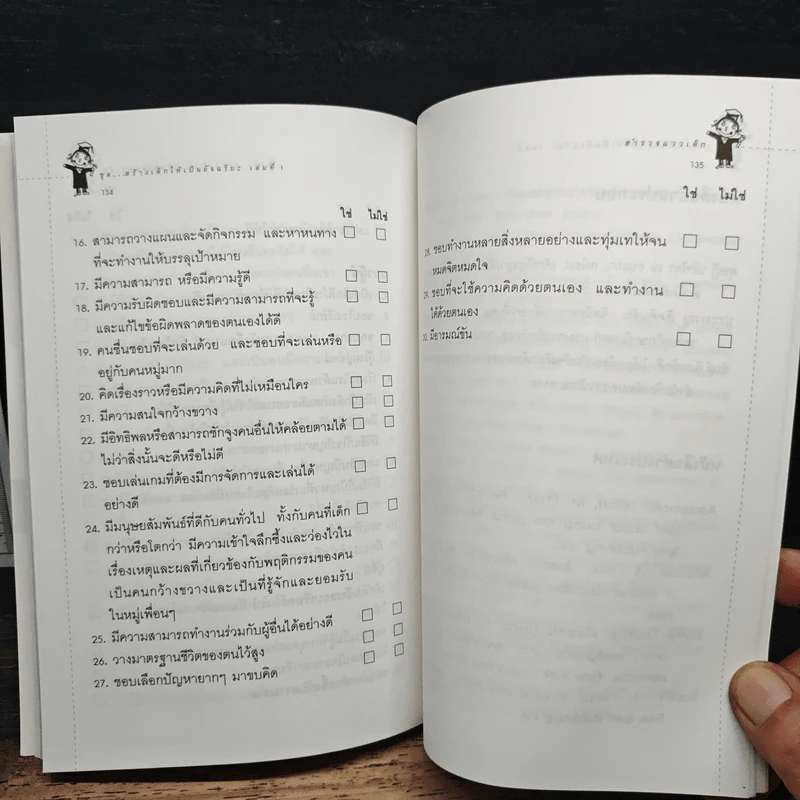 ชุด...สร้างเด็กให้เป็นอัจฉริยะ เล่มที่ 1
134
ใช่ ไม่ใช่
16. สามารถวางแผนและจัดกิจกรรม และหาหนทาง
ที่จะทำงานให้บรรลุเป้าหมาย
17. มีความสามารถ หรือมีความรู้ดี
18. มีความรับผิดชอบและมีความสามารถที่จะรู้
และแก้ไขข้อผิดพลาดของตนเองได้ดี
19. คนชื่นชอบที่จะเล่นด้วย และชอบที่จะเล่นหรือ
อยู่กับคนหมู่มาก
20. คิดเรื่องราวหรือมีความคิดที่ไม่เหมือนใคร
21. มีความสนใจกว้างขวาง
22. มีอิทธิพลหรือสามารถชักจูงคนอื่นให้คล้อยตามได้
ไม่ว่าสิ่งนั้นจะดีหรือไม่ดี
23. ชอบเล่นเกมที่ต้องมีการจัดการและเล่นได้
อย่างดี
24. มีมนุษยสัมพันธ์ที่ดีกับคนทั่วไป ทั้งกับคนที่เด็ก
กว่าหรือโตกว่า มีความเข้าใจลึกซึ้งและว่องไวใน
เรื่องเหตุและผลที่เกี่ยวข้องกับพฤติกรรมของคน
เป็นคนกว้างขวางและเป็นที่รู้จักและยอมรับ
ในหมู่เพื่อนๆ
25. มีความสามารถทำงานร่วมกับผู้อื่นได้อย่างดี
26. วางมาตรฐานชีวิตของตนไว้สูง
27. ชอบเลือกปัญหายากๆ มาขบคิด
สำรวจแววเด็ก
135
ใช่ ไม่ใช่
28. ชอบทำงานหลายสิ่งหลายอย่างและทุ่มเทให้จน
หมดจิตหมดใจ
29. ชอบที่จะใช้ความคิดด้วยตนเอง และทำงาน
ได้ด้วยตนเอง
30. มีอารมณ์ขัน